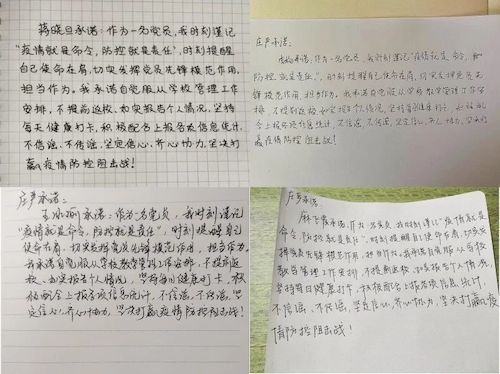 蒋晓旦承诺：作为一名党员，我时刻谨记
“疫情就是命令，防控就是责任”，时刻提醒
自己使命在肩，切实发挥党员先锋模范作用，
担当作为。我承诺自觉服从学校管理工作
安排，不提前返校，如实报告个人情况，坚持
每天健康打卡，积极配合上报各级信息统计，
不信谣，不传谣，坚定信心，齐心协力，坚决打
赢疫情防控阻击战！
庄严承诺：
承诺：作为一名党员，我时刻谨记“疫情就是命令，
防控就是责任”，时刻提醒自己使命在肩，切实发挥党员先锋
模范作用，担当作为。我承诺自觉服从学校教学管理工作安
排，不提前返校，如实报告个人情况，坚持每日健康打卡，积极配
合上报各级信息统计，不信谣，不传谣，坚定信心，齐心协力，坚决打
赢疫情防控阻击战！
庄严承诺：
承诺：作为一名党员，我时刻谨记
“疫情就是命令，防控就是责任”，时刻提醒自己
使命在肩，切实发挥党员先锋模范作用，担当作为。
我承诺自觉服从学校教学管理工作安排，不提前返
校，如实报告个人情况，坚持每日健康打卡，积
极配合上报各级信息统计，不信谣，不传谣，坚
定信心，齐心协力，坚决打赢疫情防控阻击战！
庄严承诺：
承诺：作为一名党员，我时刻谨记“疫情就是
命令，防控就是责任”，时刻提醒自己使命在肩，切实
发挥党员先锋模范作用，担当作为。我承诺自觉服从学校
教学管理工作安排，不提前返校，如实报告个人情况，
坚持每日健康打卡，积极配合上报各级信息统计，
不信谣、不传谣，坚定信心，齐心协力，坚决打赢疫
情防控阻击战！